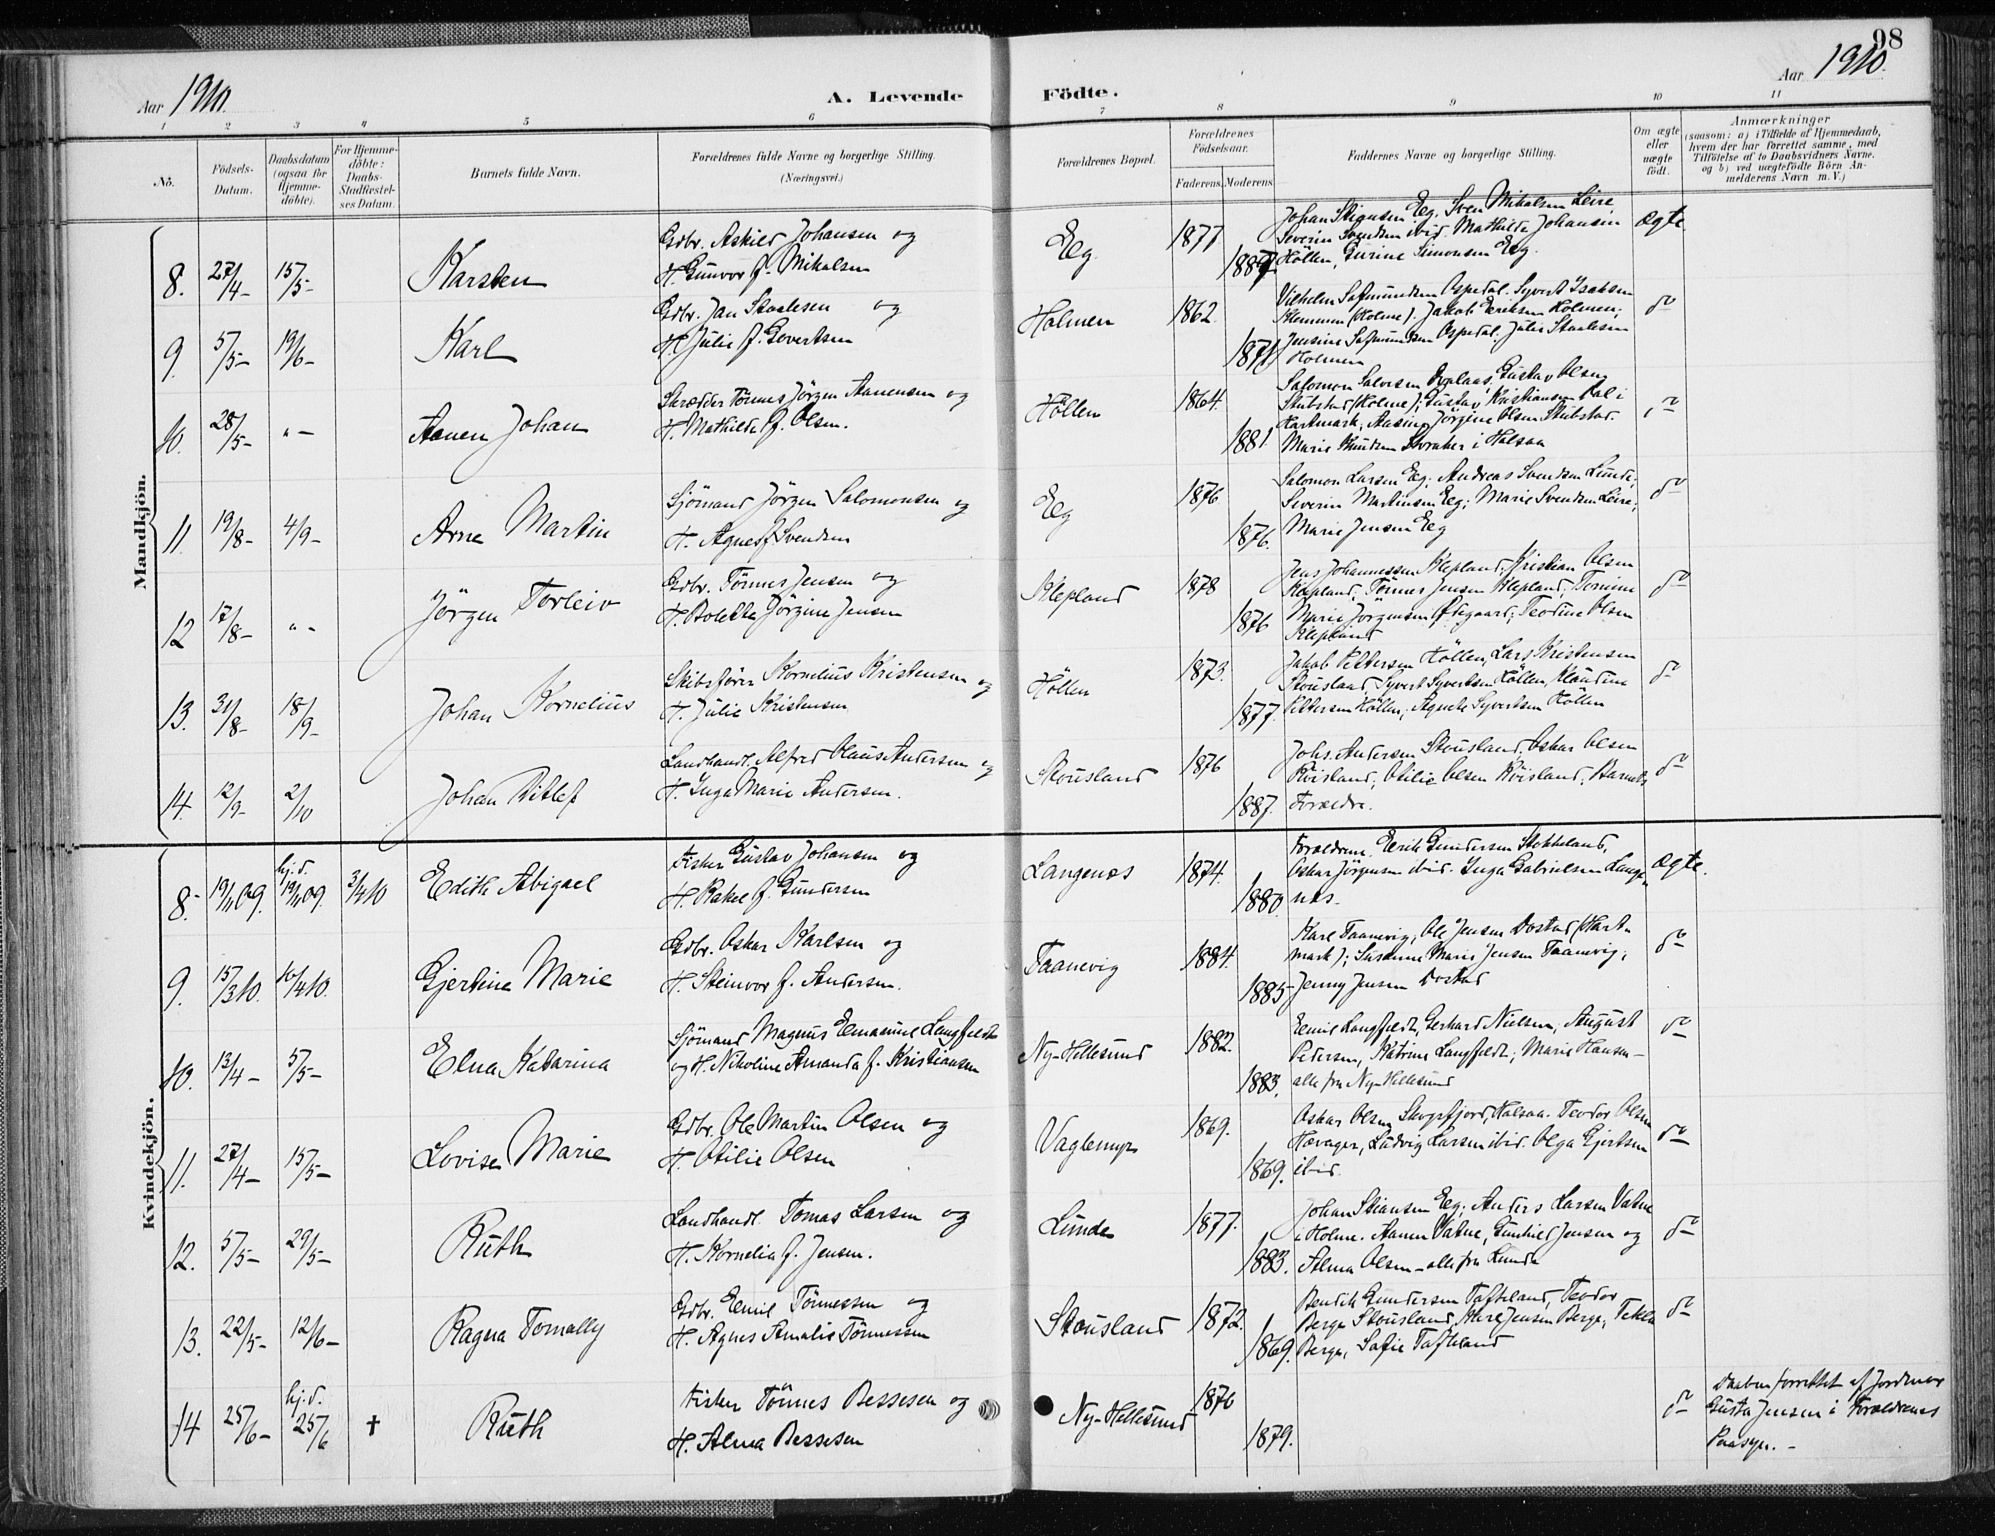 98
Aar 1910.
A. Levende
Födte.
Aar 1910.
1 2 3 4 5 6 7 8 9 10 11
No.
Födsels-Datum.
Daabsdatum (ogsaa for Hjemme-döbte).
For Hjemme-döbte: Daabs-Stadfæstel-ses Datum.
Barnets fulde Navn.
Forældrenes fulde Navne og borgerlige Stilling.
(Næringsvei.)
Forældrenes Bopæl.
Forældrenes Födselsaar.
Faderens. Moderens.
Faddernes Navne og borgerlige Stilling.
Om ægte eller uægte födt.
Anmærkninger
(saasom: a) i Tilfælde af Hjemmedaab,
hvem der har forrettet samme, med
Tilföielse af to Daabsvidners Navne.
og b) ved uægtefödte Börn An-
melderens Navn m. V.)
Mandkjön.
8. 27/4- 15/5- Karsten
Gdbr. Askild Johansen og
H. Gunvor f. Mikalsen
Eeg 1877 1887
Johan Stiansen Eeg. Sven Mikalsen Leire,
Severin Svendsen ibid. Mathilde Johansen
Höllen, Gurine Simonsen Eeg.
Ægte
9. 5/5- 19/6- Karl
Gdbr. Jan Staalesen og
H. Julie f. Govertsen
Holmen 1862. 1871
Vilhelm Salmundsen Ospedal. Syvert Isaksen
(Holme). Jakob Eriksen Holmen;
Jensine Salmundsen Ospedal. Julie Staalesen
Holmen
do
10. 28/5- "- Aanen Johan
Skrædder Tönnes Jörgen Aanensen og
H. Mathilde f. Olsen.
Höllen 1864. 1881
Salomon Salvesen Gustav Olsen
Stubstad (Holme); Gustav Kristiansen Dal i
Hartmark; Aasine Jörgine Olsen Stubstad.
Marie Knudsen i Halsaa
do
11. 19/8- 4/9- Arne Martin
Sjömand Jörgen Salomonsen og
H. Agnes f Svendsen
Eeg 1876. 1876.
Salomon Larsen Eeg; Andreas Svendsen Lunde.
Severin Martinsen Eeg; Marie Svendsen Leire;
Marie Jensen Eeg
do
12 17/8- "- Jörgen Torleiv
Gdbr. Tönnes Jensen og
H. Bolette Jörgine Jensen
Klepland 1878 1876
Jens Johannessen Klepland; Kristian Olsen
Klepland, Tönnes Jensen Klepland; Tomine
Marie Jörgensen Ödegaard; Teodine Olsen
Klepland
do
13. 31/8- 18/9- Johan Kornelius
Skibsförer Kornelius Kristensen og
H. Julie Kristensen
Höllen 1873. 1877.
Jakob Pettersen Höllen, Lars Kristensen
Stousland, Syvert Syvertsen Höllen, Klaudine
Pettersen Höllen; Agnete Syvertsen Höllen
do
14. 12/9- 2/10 Johan Ditlef
Landhandl. Alfred Olaus Andersen og
H. Inga Marie Andersen.
Stousland 1876 1887.
Johs. Andersen Stousland. Oskar Olsen
Röisland; Otilie Olsen Röisland; Barnets
Forældre.
do
Kvindekjön.
8. 19/11 09. hj.d. 19/11 09. 3/4 10 Edith Abigael
Fisker Gustav Johansen og
H. Rakel f. Gundersen
Langenes 1874. 1880.
Forældrene. Eerik Gundersen Stokkeland,
Oskar Jörgensen ibid. Inga Gabrielsen Lange-
nes.
Ægte.
9. 15/3 10. 10/4 10. Gjertine Marie
Gdbr. Oskar Karlsen og
H. Steinvor f. Andersen.
Taanevig 1884. 1885
Karl Taanevig, Ole Jensen Dostad (Hart-
mark); Susanne Marie Jensen Taanevig;
Jenny Jensen Dostad
do
10. 13/4- 5/5- Elna Katarina
Sjömand Magnus Eemanuel Langfeldt
og H. Nikoline Amanda f. Kristiansen
Ny-Hellesund 1882. 1883.
Eemil Langfeldt, Gerhard Nielsen, August
Pedersen, Katrine Langfeldt; Marie Hansen-
alle fra Ny-Hellesund
do
11. 27/4- 15/5- Lovise Marie
Gdbr. Ole Martin Olsen og
H. Otilie Olsen
Vaglemyr 1869. 1869.
Oskar Olsen Skogsfjord, Halsaa. Teodor Olsen
Havager, Ludvig Larsen ibid. Olga Gjertsen
ibid.
do
12. 5/5- 29/5- Ruth
Landhandl. Tomas Larsen og
H. Kornelia f. Jensen.
Lunde 1877. 1883.
Johan Stiansen Eeg; Anders Larsen Vatne
i Holme. Aanen Vatne, Gunhild Jensen og
Alma Olsen - alle fra Lunde
do
13. 22/5- 12/6- Ragna Tomally
Gdbr. Eemil Tönnessen og
H. Agnes Amalie Tönnessen
Stousland 1872. 1869.
Bendik Gundersen Tafteland, Teodor
Berge Stousland, Jensen Berge, Tekla
Berge, Sofie Tafteland
do
14 25/6- hj.d. 25/6 † Ruth
Fisker Tönnes Bessesen og
H. Alma Bessesen
Ny-Hellesund 1876 1879.
do
Daaben forrettet af Jordmor
Gusta Jensen i Forældrenes
Paasyn. -